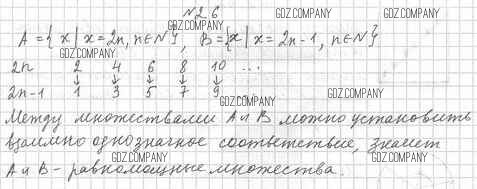 №26 GDZ.COMPANY GDZ.COMPANY
GDZ.COMPANY
A = { x | x = 2n, n ∈ N }, B = { x | x = 2n - 1, n ∈ N }
GDZ.COMPANY
2n 2 4 6 8 10 ...
↓ ↓ ↓ ↓ ↓
2n-1 1 3 5 7 9
GDZ.COMPANY GDZ.COMPANY
Между множествами A и B можно установить
взаимно однозначное соответствие, значит
GDZ.COMPANY GDZ.COMPANY
A и B - равномощные множества.